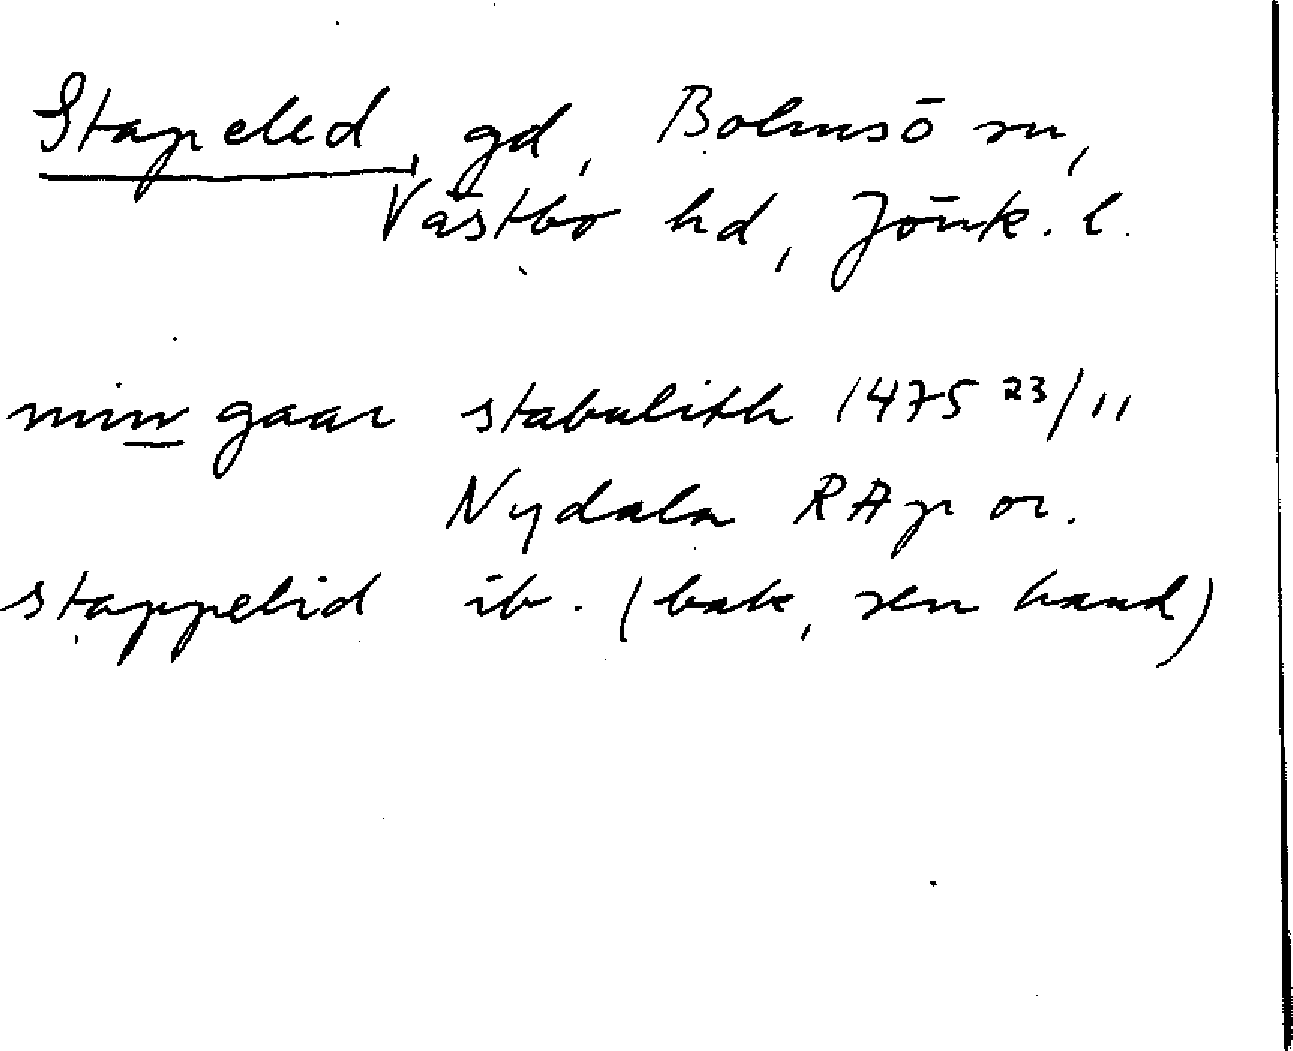 Stapeled, gd, Bolmsö sn,
Västbo hd, Jönk. l.
min gaar stabulith 1475 23/11
Nydala RAp or.
stappelid ib. (bak, sen hand)